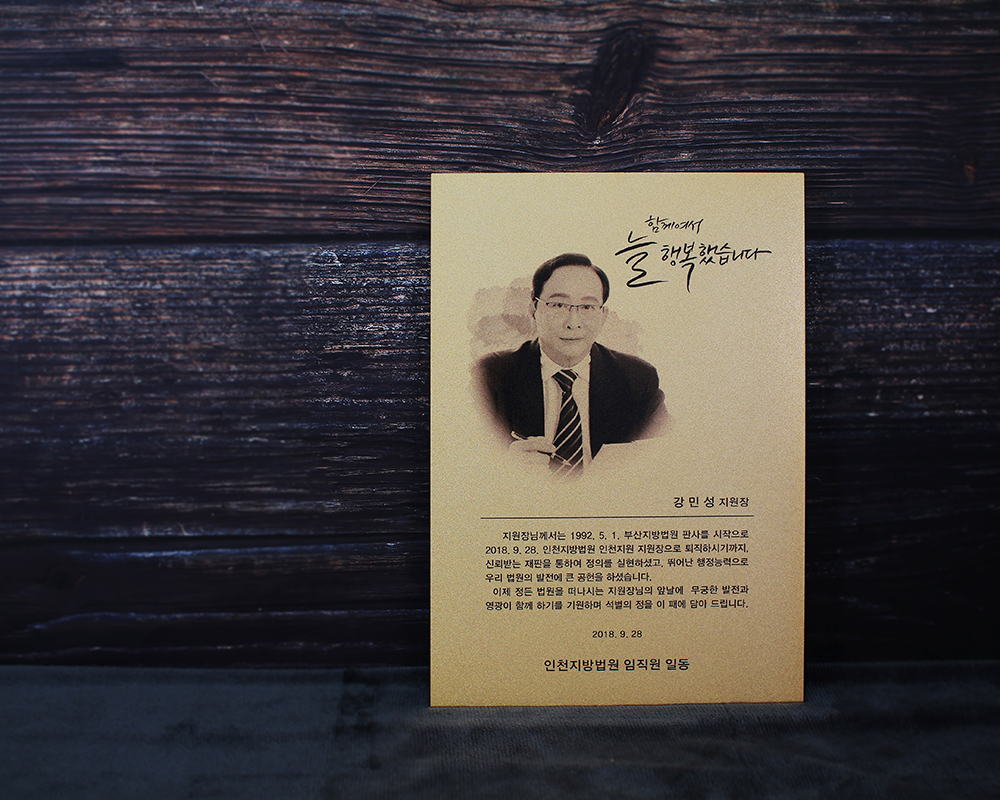 함께여서
늘 행복했습니다
강 민 성 지원장
지원장님께서는 1992. 5. 1. 부산지방법원 판사를 시작으로
2018. 9. 28. 인천지방법원 인천지원 지원장으로 퇴직하시기까지,
신뢰받는 재판을 통하여 정의를 실현하셨고, 뛰어난 행정능력으로
우리 법원의 발전에 큰 공헌을 하셨습니다.
이제 정든 법원을 떠나시는 지원장님의 앞날에 무궁한 발전과
영광이 함께 하기를 기원하며 석별의 정을 이 패에 담아 드립니다.
2018. 9. 28
인천지방법원 임직원 일동